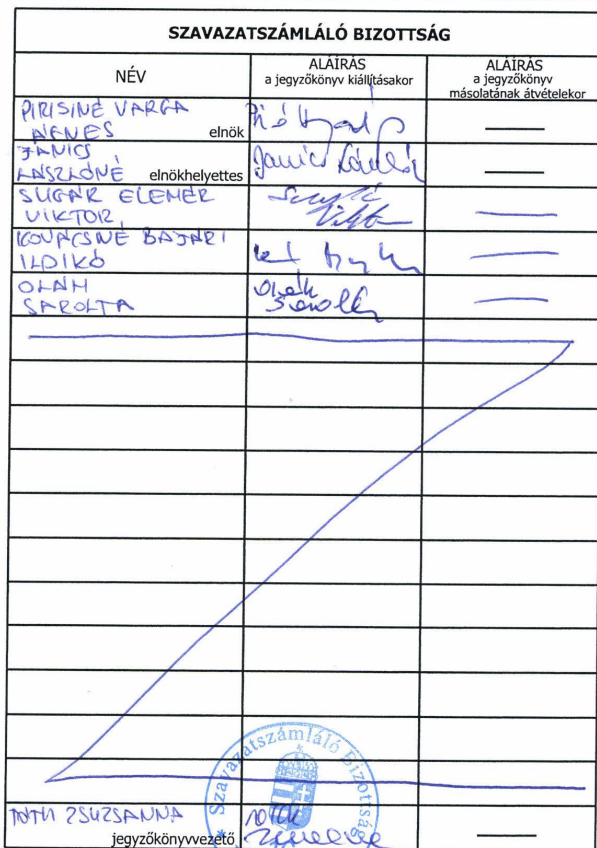 SZAVAZATSZÁMLÁLÓ BIZOTTSÁG
NÉV
ALÁÍRÁS
a jegyzőkönyv kiállításakor
ALÁÍRÁS
a jegyzőkönyv
másolatának átvételekor
PIRISINÉ VARGA
ÁGNES elnök
JANICS
LÁSZLÓNÉ elnökhelyettes
Janics Lászlóné
SUGÁR ELEMÉR
VIKTOR
KOVÁCSNÉ BAJÁRI
ILDIKÓ
OLÁH
SAROLTA
Oláh
Sarolta
Szavazatszámláló Bizottság
TÓTH ZSUZSANNA
jegyzőkönyvvezető
Tóth
Zsuzsanna